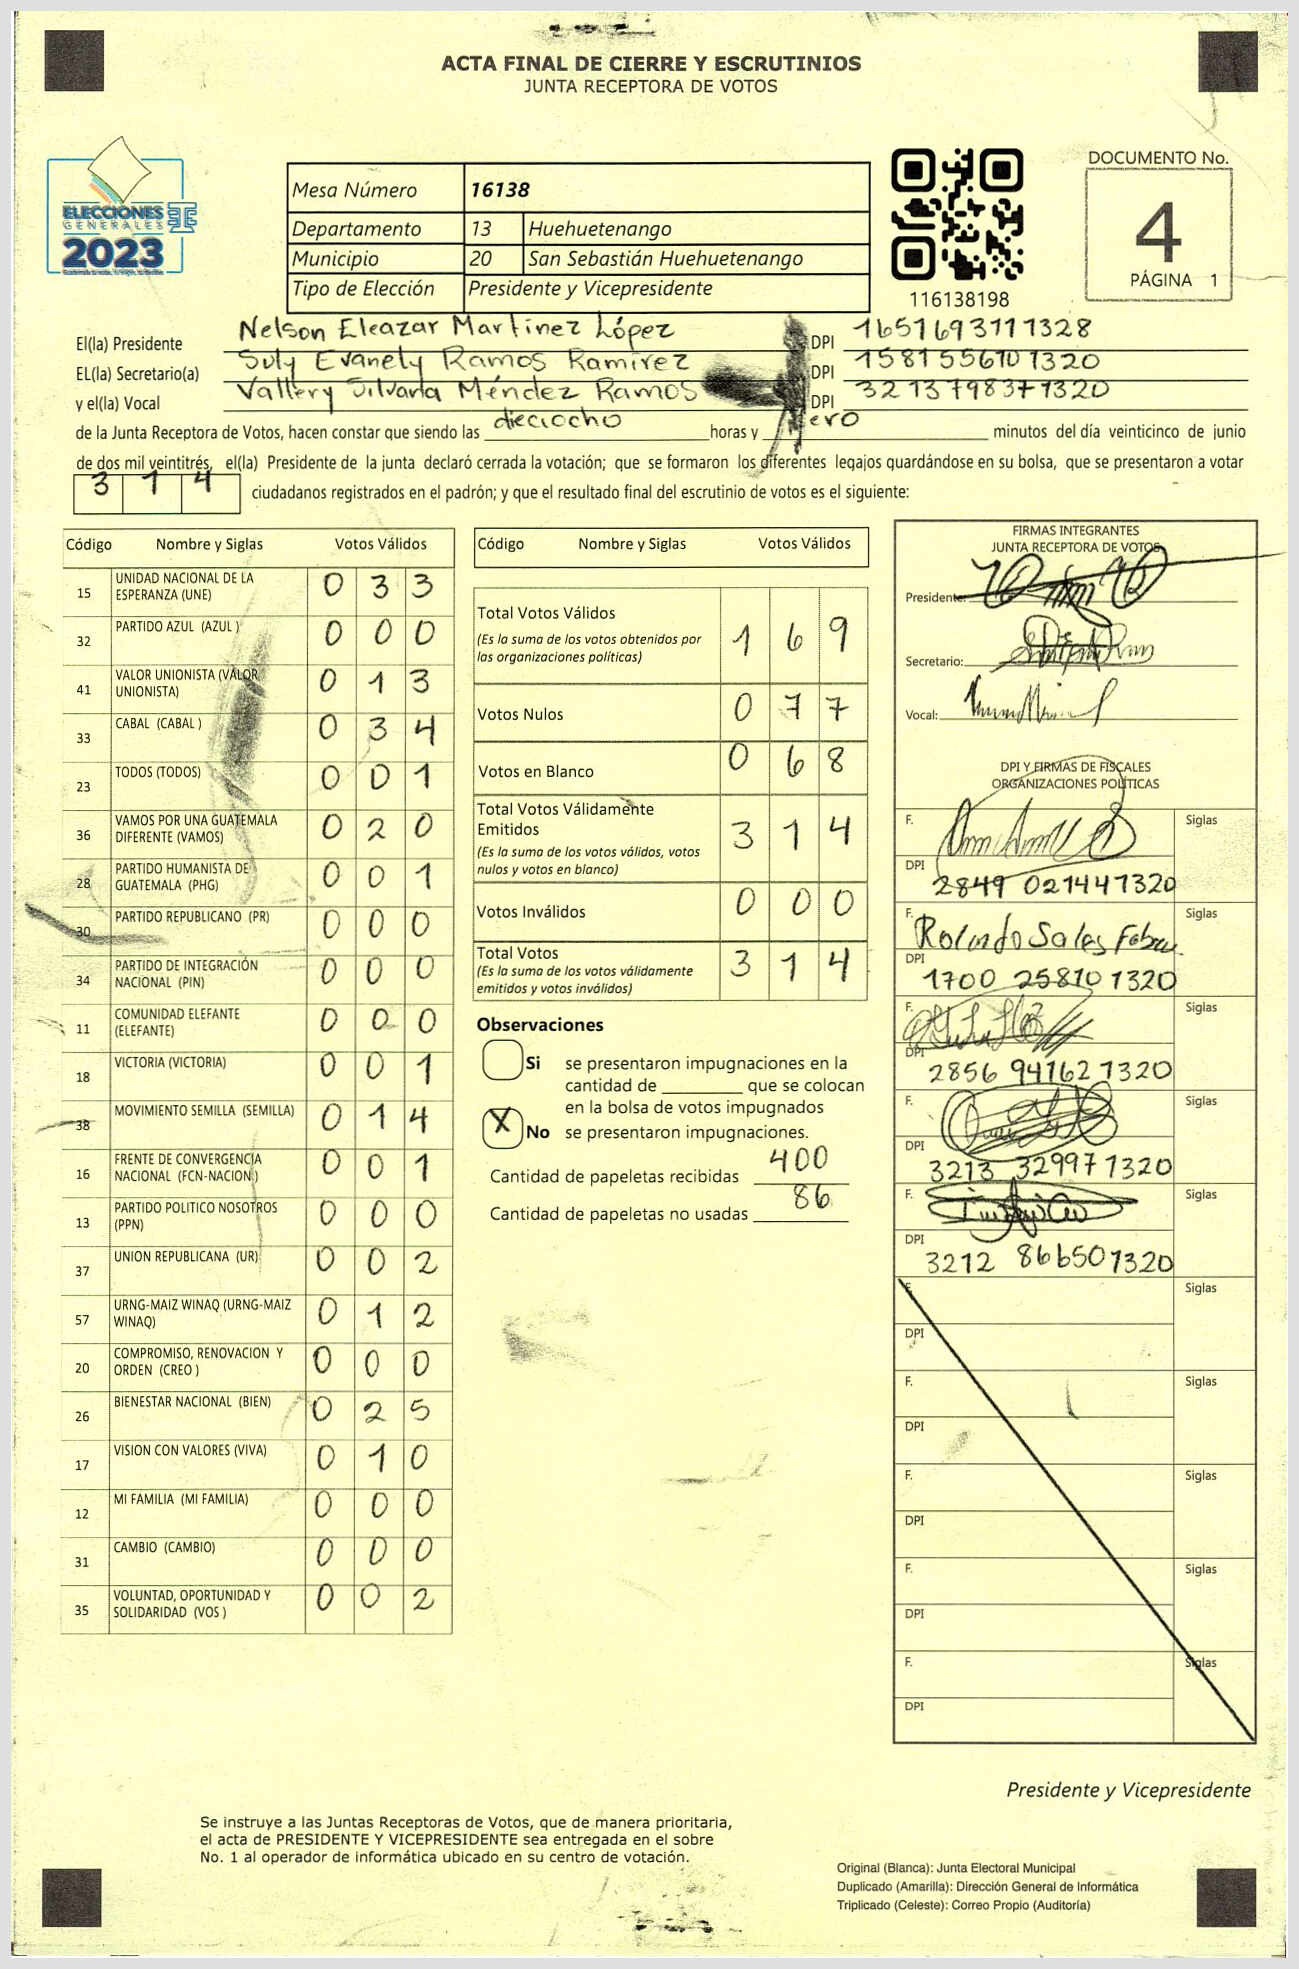 ACTA FINAL DE CIERRE Y ESCRUTINIOS
JUNTA RECEPTORA DE VOTOS
ELECCIONES
GENERALES
2023
Mesa Número 16138
Departamento 13 Huehuetenango
Municipio 20 San Sebastián Huehuetenango
Tipo de Elección Presidente y Vicepresidente
116138198
DOCUMENTO No.
4
PÁGINA 1
El(la) Presidente Nelson Eleazar Martinez López DPI 1651693111328
EL(la) Secretario(a) Suly Evanely Ramos Ramirez DPI 1581556101320
y el(la) Vocal Vallery Silvana Méndez Ramos DPI 3213798371320
de la Junta Receptora de Votos, hacen constar que siendo las dieciocho horas y cero minutos del día veinticinco de junio
de dos mil veintitrés, el(la) Presidente de la junta declaró cerrada la votación; que se formaron los diferentes legajos guardándose en su bolsa, que se presentaron a votar
314 ciudadanos registrados en el padrón; y que el resultado final del escrutinio de votos es el siguiente:
Código Nombre y Siglas Votos Válidos
15 UNIDAD NACIONAL DE LA ESPERANZA (UNE) 0 3 3
32 PARTIDO AZUL (AZUL ) 0 0 0
41 VALOR UNIONISTA (VALOR UNIONISTA) 0 1 3
33 CABAL (CABAL ) 0 3 4
23 TODOS (TODOS) 0 0 1
36 VAMOS POR UNA GUATEMALA DIFERENTE (VAMOS) 0 2 0
28 PARTIDO HUMANISTA DE GUATEMALA (PHG) 0 0 1
30 PARTIDO REPUBLICANO (PR) 0 0 0
34 PARTIDO DE INTEGRACIÓN NACIONAL (PIN) 0 0 0
11 COMUNIDAD ELEFANTE (ELEFANTE) 0 0 0
18 VICTORIA (VICTORIA) 0 0 1
38 MOVIMIENTO SEMILLA (SEMILLA) 0 1 4
16 FRENTE DE CONVERGENCIA NACIONAL (FCN-NACION) 0 0 1
13 PARTIDO POLITICO NOSOTROS (PPN) 0 0 0
37 UNION REPUBLICANA (UR) 0 0 2
57 URNG-MAIZ WINAQ (URNG-MAIZ WINAQ) 0 1 2
20 COMPROMISO, RENOVACION Y ORDEN (CREO ) 0 0 0
26 BIENESTAR NACIONAL (BIEN) 0 2 5
17 VISION CON VALORES (VIVA) 0 1 0
12 MI FAMILIA (MI FAMILIA) 0 0 0
31 CAMBIO (CAMBIO) 0 0 0
35 VOLUNTAD, OPORTUNIDAD Y SOLIDARIDAD (VOS ) 0 0 2
Código Nombre y Siglas Votos Válidos
Total Votos Válidos 1 6 9
(Es la suma de los votos obtenidos por
las organizaciones políticas)
Votos Nulos 0 7 7
Votos en Blanco 0 6 8
Total Votos Válidamente
Emitidos 3 1 4
(Es la suma de los votos válidos, votos
nulos y votos en blanco)
Votos Inválidos 0 0 0
Total Votos 3 1 4
(Es la suma de los votos válidamente
emitidos y votos inválidos)
Observaciones
Si se presentaron impugnaciones en la
cantidad de ________ que se colocan
en la bolsa de votos impugnados
X No se presentaron impugnaciones.
Cantidad de papeletas recibidas 400
Cantidad de papeletas no usadas 86
FIRMAS INTEGRANTES
JUNTA RECEPTORA DE VOTOS
Presidente:
Secretario:
Vocal:
DPI Y FIRMAS DE FISCALES
ORGANIZACIONES POLÍTICAS
F. Siglas
DPI 2849 021441320
F. Rolando Sales Siglas
DPI 1700 258101320
F. Siglas
DPI 2856 941621320
F. Siglas
DPI 3213 329971320
F. Siglas
DPI 3212 866501320
F. Siglas
DPI
F. Siglas
DPI
F. Siglas
DPI
F. Siglas
DPI
F. Siglas
DPI
Presidente y Vicepresidente
Se instruye a las Juntas Receptoras de Votos, que de manera prioritaria,
el acta de PRESIDENTE Y VICEPRESIDENTE sea entregada en el sobre
No. 1 al operador de informática ubicado en su centro de votación.
Original (Blanca): Junta Electoral Municipal
Duplicado (Amarilla): Dirección General de Informática
Triplicado (Celeste): Correo Propio (Auditoría)